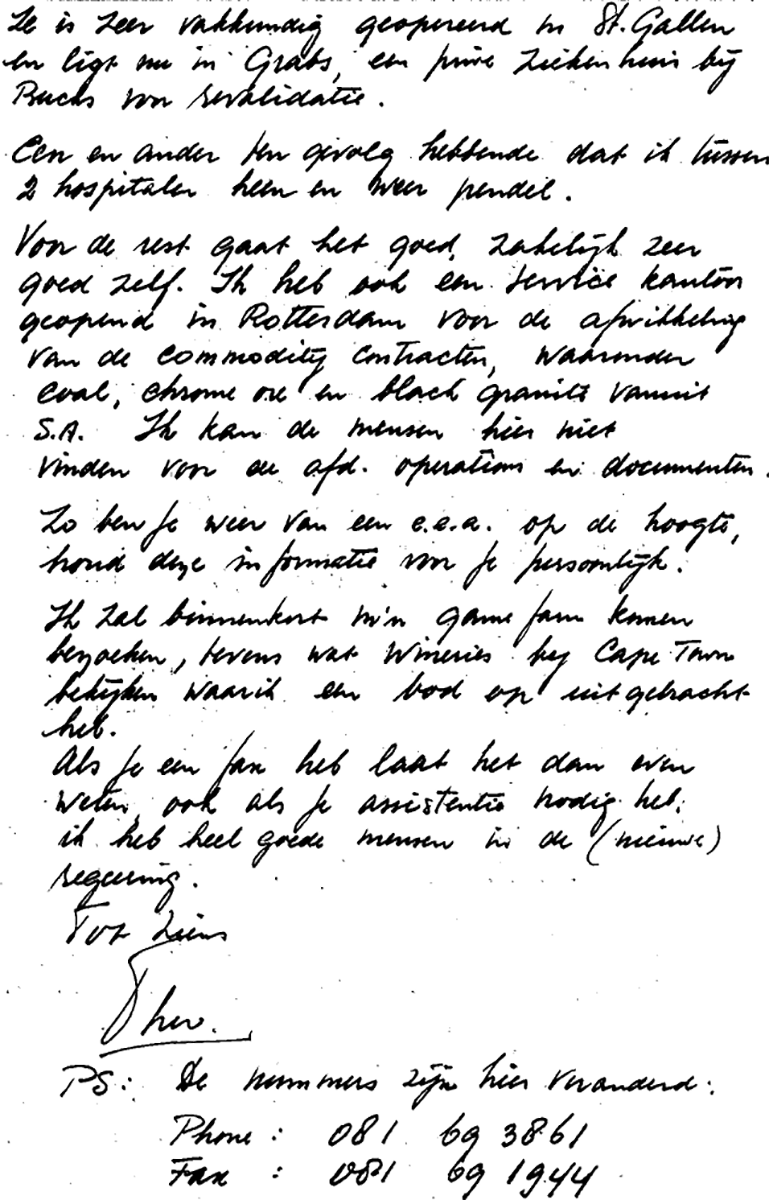 Ze is zeer vakkundig geopereerd in St. Gallen
en ligt nu in Grabs, een prive ziekenhuis bij
Buchs voor revalidatie.
Een en ander ten gevolg hebbende dat ik tussen
2 hospitalen heen en weer pendel.
Voor de rest gaat het goed, zakelijk zeer
goed zelf. Ik heb ook een service kantoor
geopend in Rotterdam voor de afwikkeling
van de commodity contracten, waaronder
coal, chrome ore en black granite vanuit
S.A. Ik kan de mensen hier niet
vinden voor de afd. operations en documenten.
Zo ben je weer van een e.e.a. op de hoogte,
houd deze informatie voor je persoonlijk.
Ik zal binnenkort m'n game farm komen
bezoeken, tevens wat wineries bij Cape Town
bekijken waar ik een bod op uitgebracht
heb.
Als je een fax heb laat het dan even
weten, ook als je assistentie nodig heb,
ik heb heel goede mensen in de (nieuwe)
regeering.
Tot ziens
Theo.
PS: De nummers zijn hier veranderd:
Phone : 081 69 3861
Fax : 081 69 1944